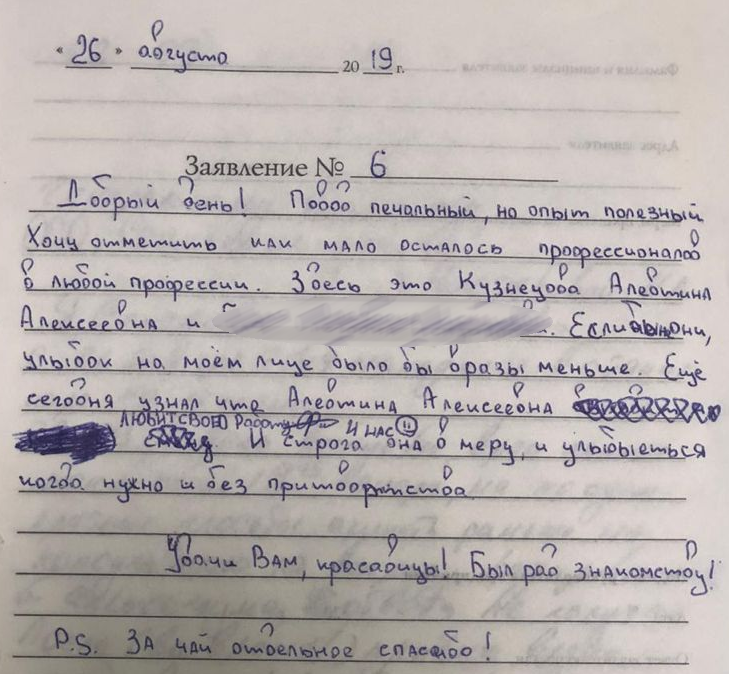 « 26 » августа 2019 г.
Заявление № 6
Добрый день! Повод печальный, но опыт полезный
Хочу отметить как мало осталось профессионалов
в любой профессии. Здесь это Кузнецова Алевтина
Алексеевна и . Если бы не они,
улыбок на моём лице было бы в разы меньше. Ещё
сегодня узнал что Алевтина Алексеевна
ЛЮБИТ СВОЮ Работу И НАС
И строга она в меру, и улыбыеться
когда нужно и без притворства
Удачи Вам, красавицы! Был рад знакомству!
P.S. За чай отдельное спасибо!